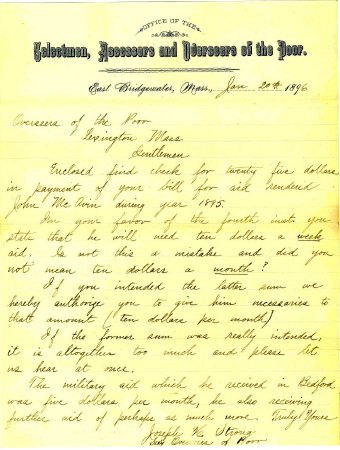 OFFICE OF THE
Selectmen, Assessors and Overseers of the Poor.
East Bridgewater, Mass., Jan 20th 1896
Overseers of the Poor
Lexington Mass
Gentlemen
Enclosed find check for twenty five dollars
in payment of your bill for aid rendered
John Mc during year 1895.
your favor of the fourth inst you
state that he will need ten dollars a week
aid. Is not this a mistake and did you
not mean ten dollars a month?
If you intended the latter sum we
hereby authorize you to give him necessaries to
that amount (ten dollars per month)
If the former sum was really intended,
it is altogether too much and please let
us hear at once.
The military aid which he received in Bedford
was five dollars per month, he also receiving
further aid of perhaps as much more. Truly Yours
Joseph K Strong
Overseers of Poor